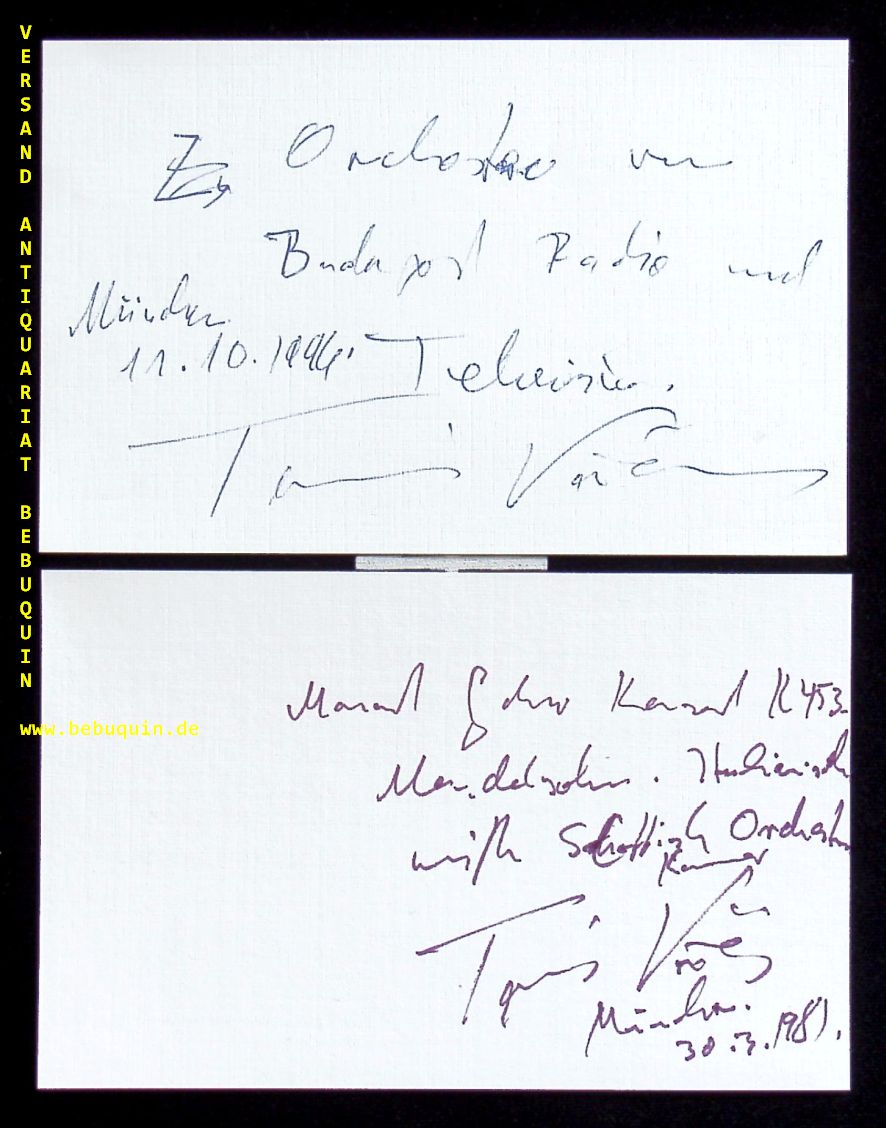 VERSAND ANTIQUARIAT BEBUQUIN
www.bebuquin.de
Orchester von
Budapest Radio und
München
11.10.1996. Television.
Tamás Vásáry
Mozart G dur Konzert K 453.
Mendelsohn. Italienisch
with Schottish Orchester
Kammer
Tamás Vásáry
München.
30.3.1981.